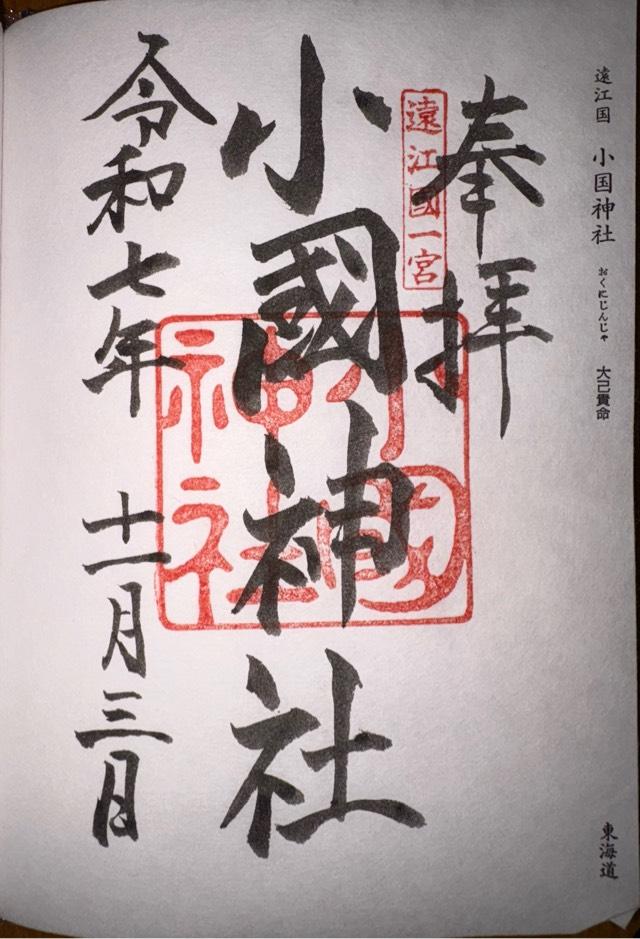 遠江国 小国神社 おくにじんじゃ 大己貴命
東海道
奉拝
遠江國一宮
小國神社
小國神社
令和七年 十一月三日